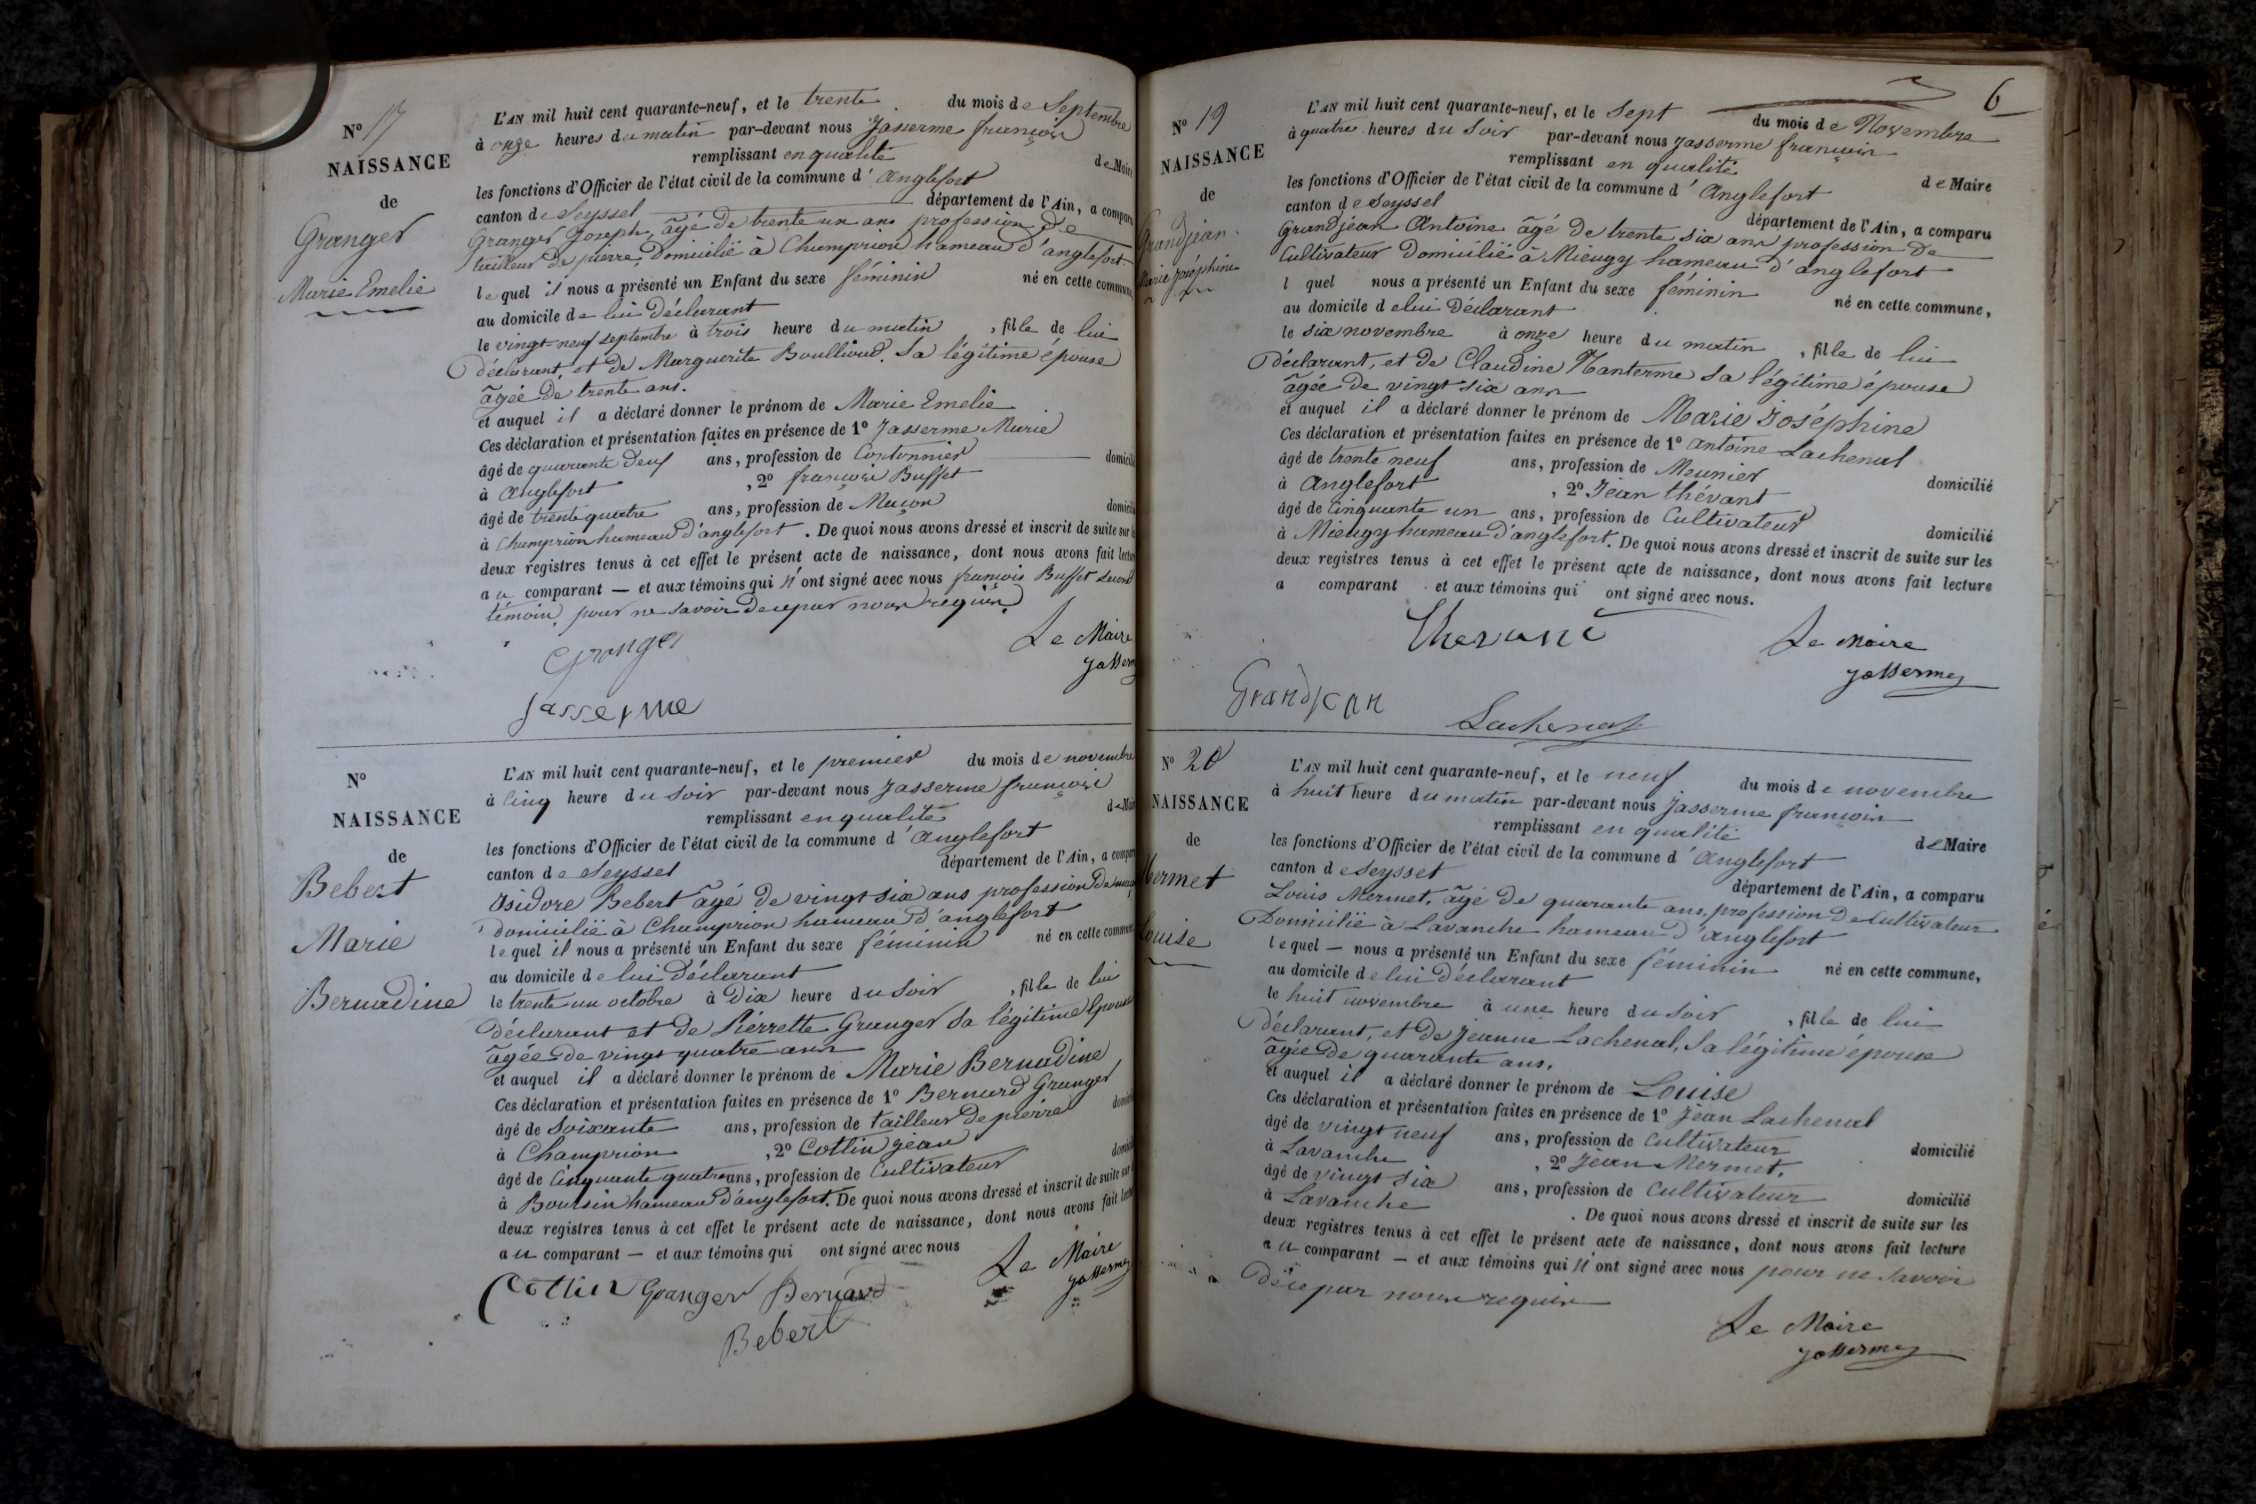 N° 17
NAISSANCE
de
Granger
Marie Emelie
L'AN mil huit cent quarante-neuf, et le trente du mois de Septembre
à onze heures du matin par-devant nous Jasserme françois
remplissant en qualité de Maire
les fonctions d'Officier de l'état civil de la commune d'anglefort
canton de Seyssel département de l'Ain, a comparu
Granger Joseph, âgé de trente un ans profession de
tailleur de pierre, Domicilié à Champrion hameau d'anglefort
lequel il nous a présenté un Enfant du sexe féminin né en cette commune
au domicile de lui Déclarant
le vingt-neuf septembre à trois heure du matin, fille de lui
déclarant et de Marguerite Boullioud. Sa légitime épouse
âgée de trente ans.
et auquel il a déclaré donner le prénom de Marie Emelie
Ces déclaration et présentation faites en présence de 1° Jasserme Marie
âgé de quarante deux ans, profession de Contonnier domicilié
à Anglefort, 2° françois Buffet
âgé de trente quatre ans, profession de Maçon domicilié
à Champrion hameau d'anglefort. De quoi nous avons dressé et inscrit de suite sur les
deux registres tenus à cet effet le présent acte de naissance, dont nous avons fait lecture
au comparant — et aux témoins qui n'ont signé avec nous françois Buffet second
témoin, pour ne savoir de ce par nous requis.
Granger
Le Maire
Jasserme
Jasserme
N°
NAISSANCE
de
Bebert
Marie
Bernadine
L'AN mil huit cent quarante-neuf, et le premier du mois de novembre
à Cinq heure du Soir par-devant nous Jasserme françois
remplissant en qualité de Maire
les fonctions d'Officier de l'état civil de la commune d'anglefort
canton de Seyssel département de l'Ain, a comparu
Isidore Bebert âgé de vingt six ans profession de
domicilié à Champrion hameau d'anglefort
lequel il nous a présenté un Enfant du sexe féminin né en cette commune
au domicile de lui Déclarant
le trente un octobre à Dix heure du Soir, fille de lui
déclarant et de Pierrette Granger Sa légitime Epouse
âgée de vingt quatre ans
et auquel il a déclaré donner le prénom de Marie Bernadine
Ces déclaration et présentation faites en présence de 1° Bernard Granger
âgé de Soixante ans, profession de tailleur de pierre domicilié
à Champrion, 2° Cottin jean
âgé de Cinquante quatre ans, profession de Cultivateur domicilié
à Boursin hameau d'anglefort. De quoi nous avons dressé et inscrit de suite sur
deux registres tenus à cet effet le présent acte de naissance, dont nous avons fait lecture
au comparant — et aux témoins qui ont signé avec nous
Le Maire
Jasserme
Cottin Granger Bernard
Bebert
6
N° 19
NAISSANCE
de
Grandjean
Marie joséphine
L'AN mil huit cent quarante-neuf, et le Sept du mois de Novembre
à quatre heures du Soir par-devant nous Jasserme françois
remplissant en qualité de Maire
les fonctions d'Officier de l'état civil de la commune d'Anglefort
canton de Seyssel département de l'Ain, a comparu
Grandjean Antoine âgé de trente six ans profession de
Cultivateur Domicilié à Mieugy hameau d'anglefort
l quel nous a présenté un Enfant du sexe féminin né en cette commune,
au domicile de lui Déclarant
le six novembre à onze heure du matin, fille de lui
Déclarant, et de Claudine Manterme Sa légitime épouse
âgée de vingt six ans
et auquel il a déclaré donner le prénom de Marie joséphine
Ces déclaration et présentation faites en présence de 1° antoine Lachenal
âgé de trente neuf ans, profession de Meunier domicilié
à Anglefort, 2° Jean thévant
âgé de Cinquante un ans, profession de Cultivateur domicilié
à Mieugy hameau d'anglefort. De quoi nous avons dressé et inscrit de suite sur les
deux registres tenus à cet effet le présent acte de naissance, dont nous avons fait lecture
a comparant et aux témoins qui ont signé avec nous.
thevant
Le Maire
Jasserme
Grandjean
Lachenal
N° 20
NAISSANCE
de
Mermet
Louise
L'AN mil huit cent quarante-neuf, et le neuf du mois de novembre
à huit heure du matin par-devant nous Jasserme françois
remplissant en qualité de Maire
les fonctions d'Officier de l'état civil de la commune d'Anglefort
canton de Seyssel département de l'Ain, a comparu
Louis Mermet, âgé de quarante ans, profession de Cultivateur
Domicilié à Lavanche hameau d'anglefort
lequel — nous a présenté un Enfant du sexe féminin né en cette commune,
au domicile de lui Déclarant
le huit novembre à une heure du Soir, fille de lui
déclarant, et de Jeanne Lachenal, Sa légitime épouse
âgée de quarante ans.
et auquel il a déclaré donner le prénom de Louise
Ces déclaration et présentation faites en présence de 1° Jean Lachenal
âgé de vingt neuf ans, profession de Cultivateur domicilié
à Lavanche, 2° Jean Mermet.
âgé de vingt six ans, profession de Cultivateur domicilié
à Lavanche. De quoi nous avons dressé et inscrit de suite sur les
deux registres tenus à cet effet le présent acte de naissance, dont nous avons fait lecture
au comparant — et aux témoins qui n'ont signé avec nous pour ne savoir
de ce par nous requis
Le Maire
Jasserme